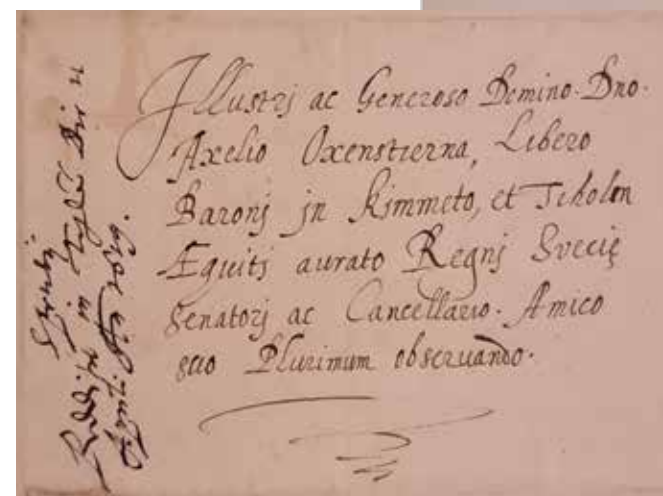 Illustrj ac Generoso Domino. Dno.
Axelio Oxenstierna, Libero
Baronj jn Kimmeto, et Tiholm
Æquitj aurato Regnj Svecię
Senatorj ac Cancellario. Amico
suo Plurimum obseruando.